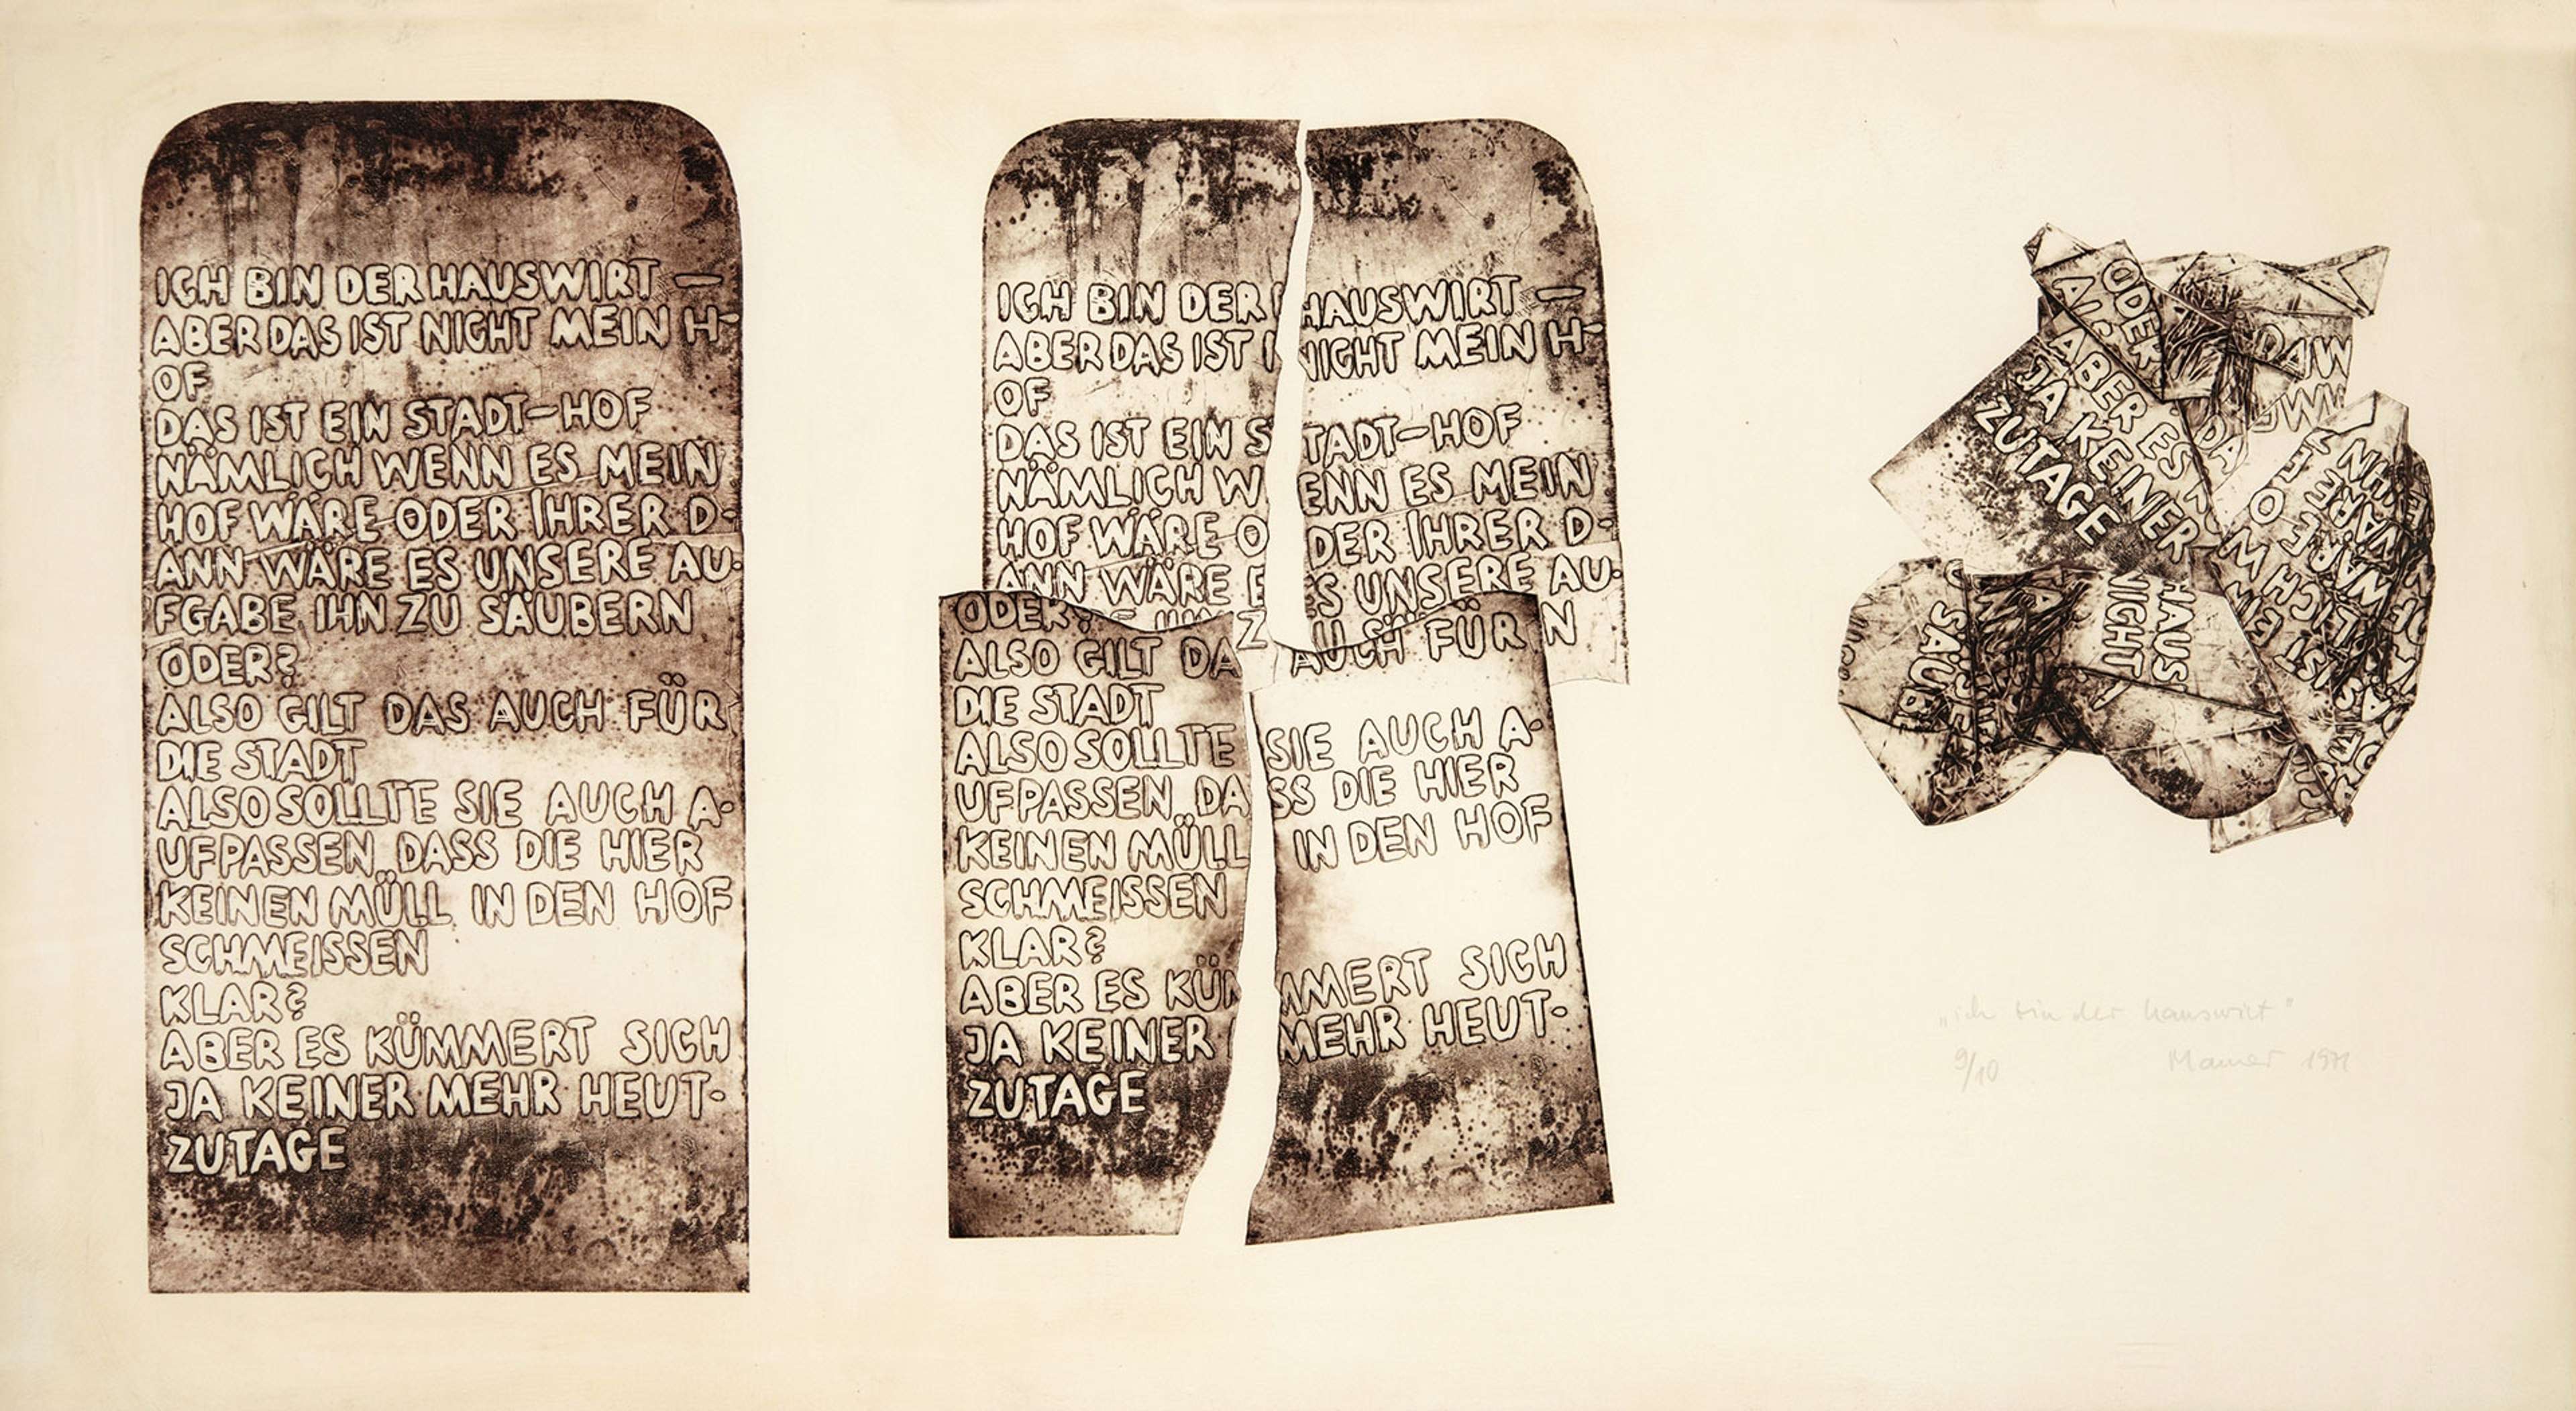 ICH BIN DER HAUSWIRT —
ABER DAS IST NICHT MEIN H-
OF
DAS IST EIN STADT-HOF
NÄMLICH WENN ES MEIN
HOF WÄRE ODER IHRER D-
ANN WÄRE ES UNSERE AU-
FGABE IHN ZU SÄUBERN
ODER?
ALSO GILT DAS AUCH FÜR
DIE STADT
ALSO SOLLTE SIE AUCH A-
UFPASSEN DASS DIE HIER
KEINEN MÜLL IN DEN HOF
SCHMEISSEN
KLAR?
ABER ES KÜMMERT SICH
JA KEINER MEHR HEUT-
ZUTAGE
ICH BIN DER HAUSWIRT —
ABER DAS IST NICHT MEIN H-
OF
DAS IST EIN STADT-HOF
NÄMLICH WENN ES MEIN
HOF WÄRE ODER IHRER D-
ANN WÄRE ES UNSERE AU-
Z N
ODER?
ALSO GILT DA AUCH FÜR
DIE STADT
ALSO SOLLTE SIE AUCH A-
UFPASSEN DASS DIE HIER
KEINEN MÜLL IN DEN HOF
SCHMEISSEN
KLAR?
ABER ES KÜMMERT SICH
JA KEINER MEHR HEUT-
ZUTAGE
ODER
ALS
ABER ES
JA KEINER
ZUTAGE
DA W
DA
WÄRE
HAUS
NICHT
SÄUBE
"ich bin der hauswirt"
9/10 1971